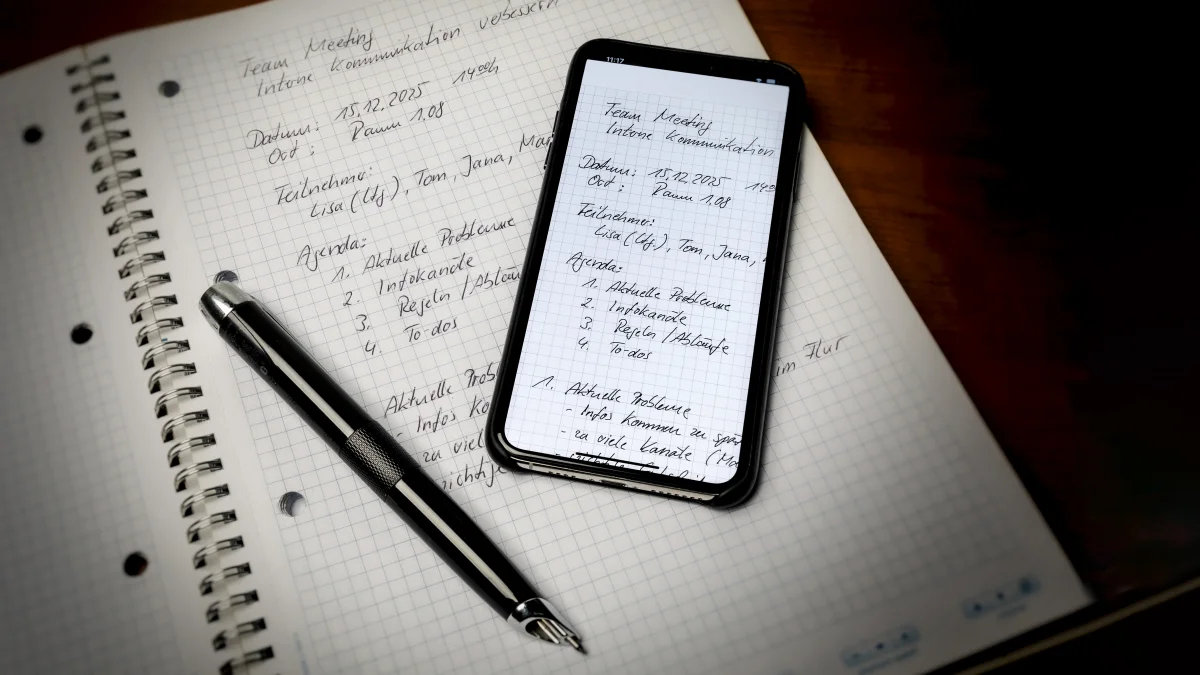 Team Meeting
Interne Kommunikation verbessern
Datum: 15.12.2025 14⁰⁰h
Ort: Raum 1.08
Teilnehmer:
Lisa (Ltg.), Tom, Jana, Mar
Agenda:
1. Aktuelle Probleme
2. Infokanäle
3. Regeln / Abläu
4. To-dos
Aktuelle Prob
- Infos Ko
- zu viel
ichtige
im Flur
11:17
Team Meeting
Interne Kommunikation
Datum: 15.12.2025 14⁰⁰
Ort: Raum 1.08
Teilnehmer:
Lisa (Ltg.), Tom, Jana,
Agenda:
1. Aktuelle Probleme
2. Infokanäle
3. Regeln / Abläufe
4. To-dos
1. Aktuelle Probleme
- Infos kommen zu spät
- zu viele Kanäle (Ma